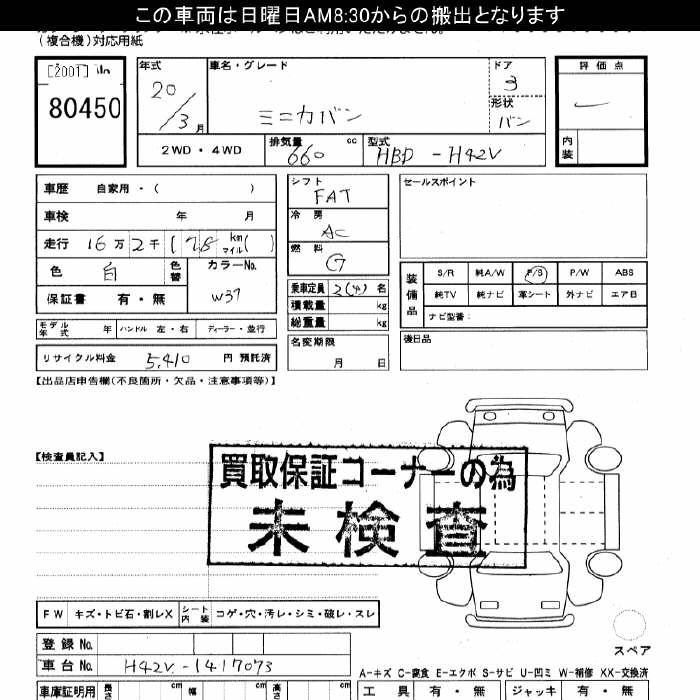 この車両は日曜日AM8:30からの搬出となります
(複合機)対応用紙
[2001]
80450
年式 車名・グレード ドア 評価点
20/3月 ミニカバン 3
形状 バン
2WD・4WD 排気量 660 cc 型式 HBD-H42V
内装
車歴 自家用・( )
車検 年 月
走行 16万2千178 km マイル( )
色 白 色替 カラーNo. W37
保証書 有・無
シフト FAT
冷房 AC
燃料 G
乗車定員 2(4)名
積載量 kg
総重量 kg
セールスポイント
装備品 S/R 純A/W P/S P/W ABS
純TV 純ナビ 革シート 外ナビ エアB
ナビ型番:
モデル年式 年 ハンドル 左・右 ディーラー・並行
名変期限 月 日
後日品
リサイクル料金 5,410 円 預託済
【出品店申告欄(不良箇所・欠品・注意事項等)】
【検査員記入】
買取保証コーナーの為
未検査
FW キズ・トビ石・割レX シート内装 コゲ・穴・汚レ・シミ・破レ・スレ
登録No.
車台No. H42V-1417073
スペア
A-キズ C-腐食 E-エクボ S-サビ U-凹ミ W-補修 XX-交換済
車庫証明用 長さ cm 幅 cm 高さ cm 工具 有・無 ジャッキ 有・無